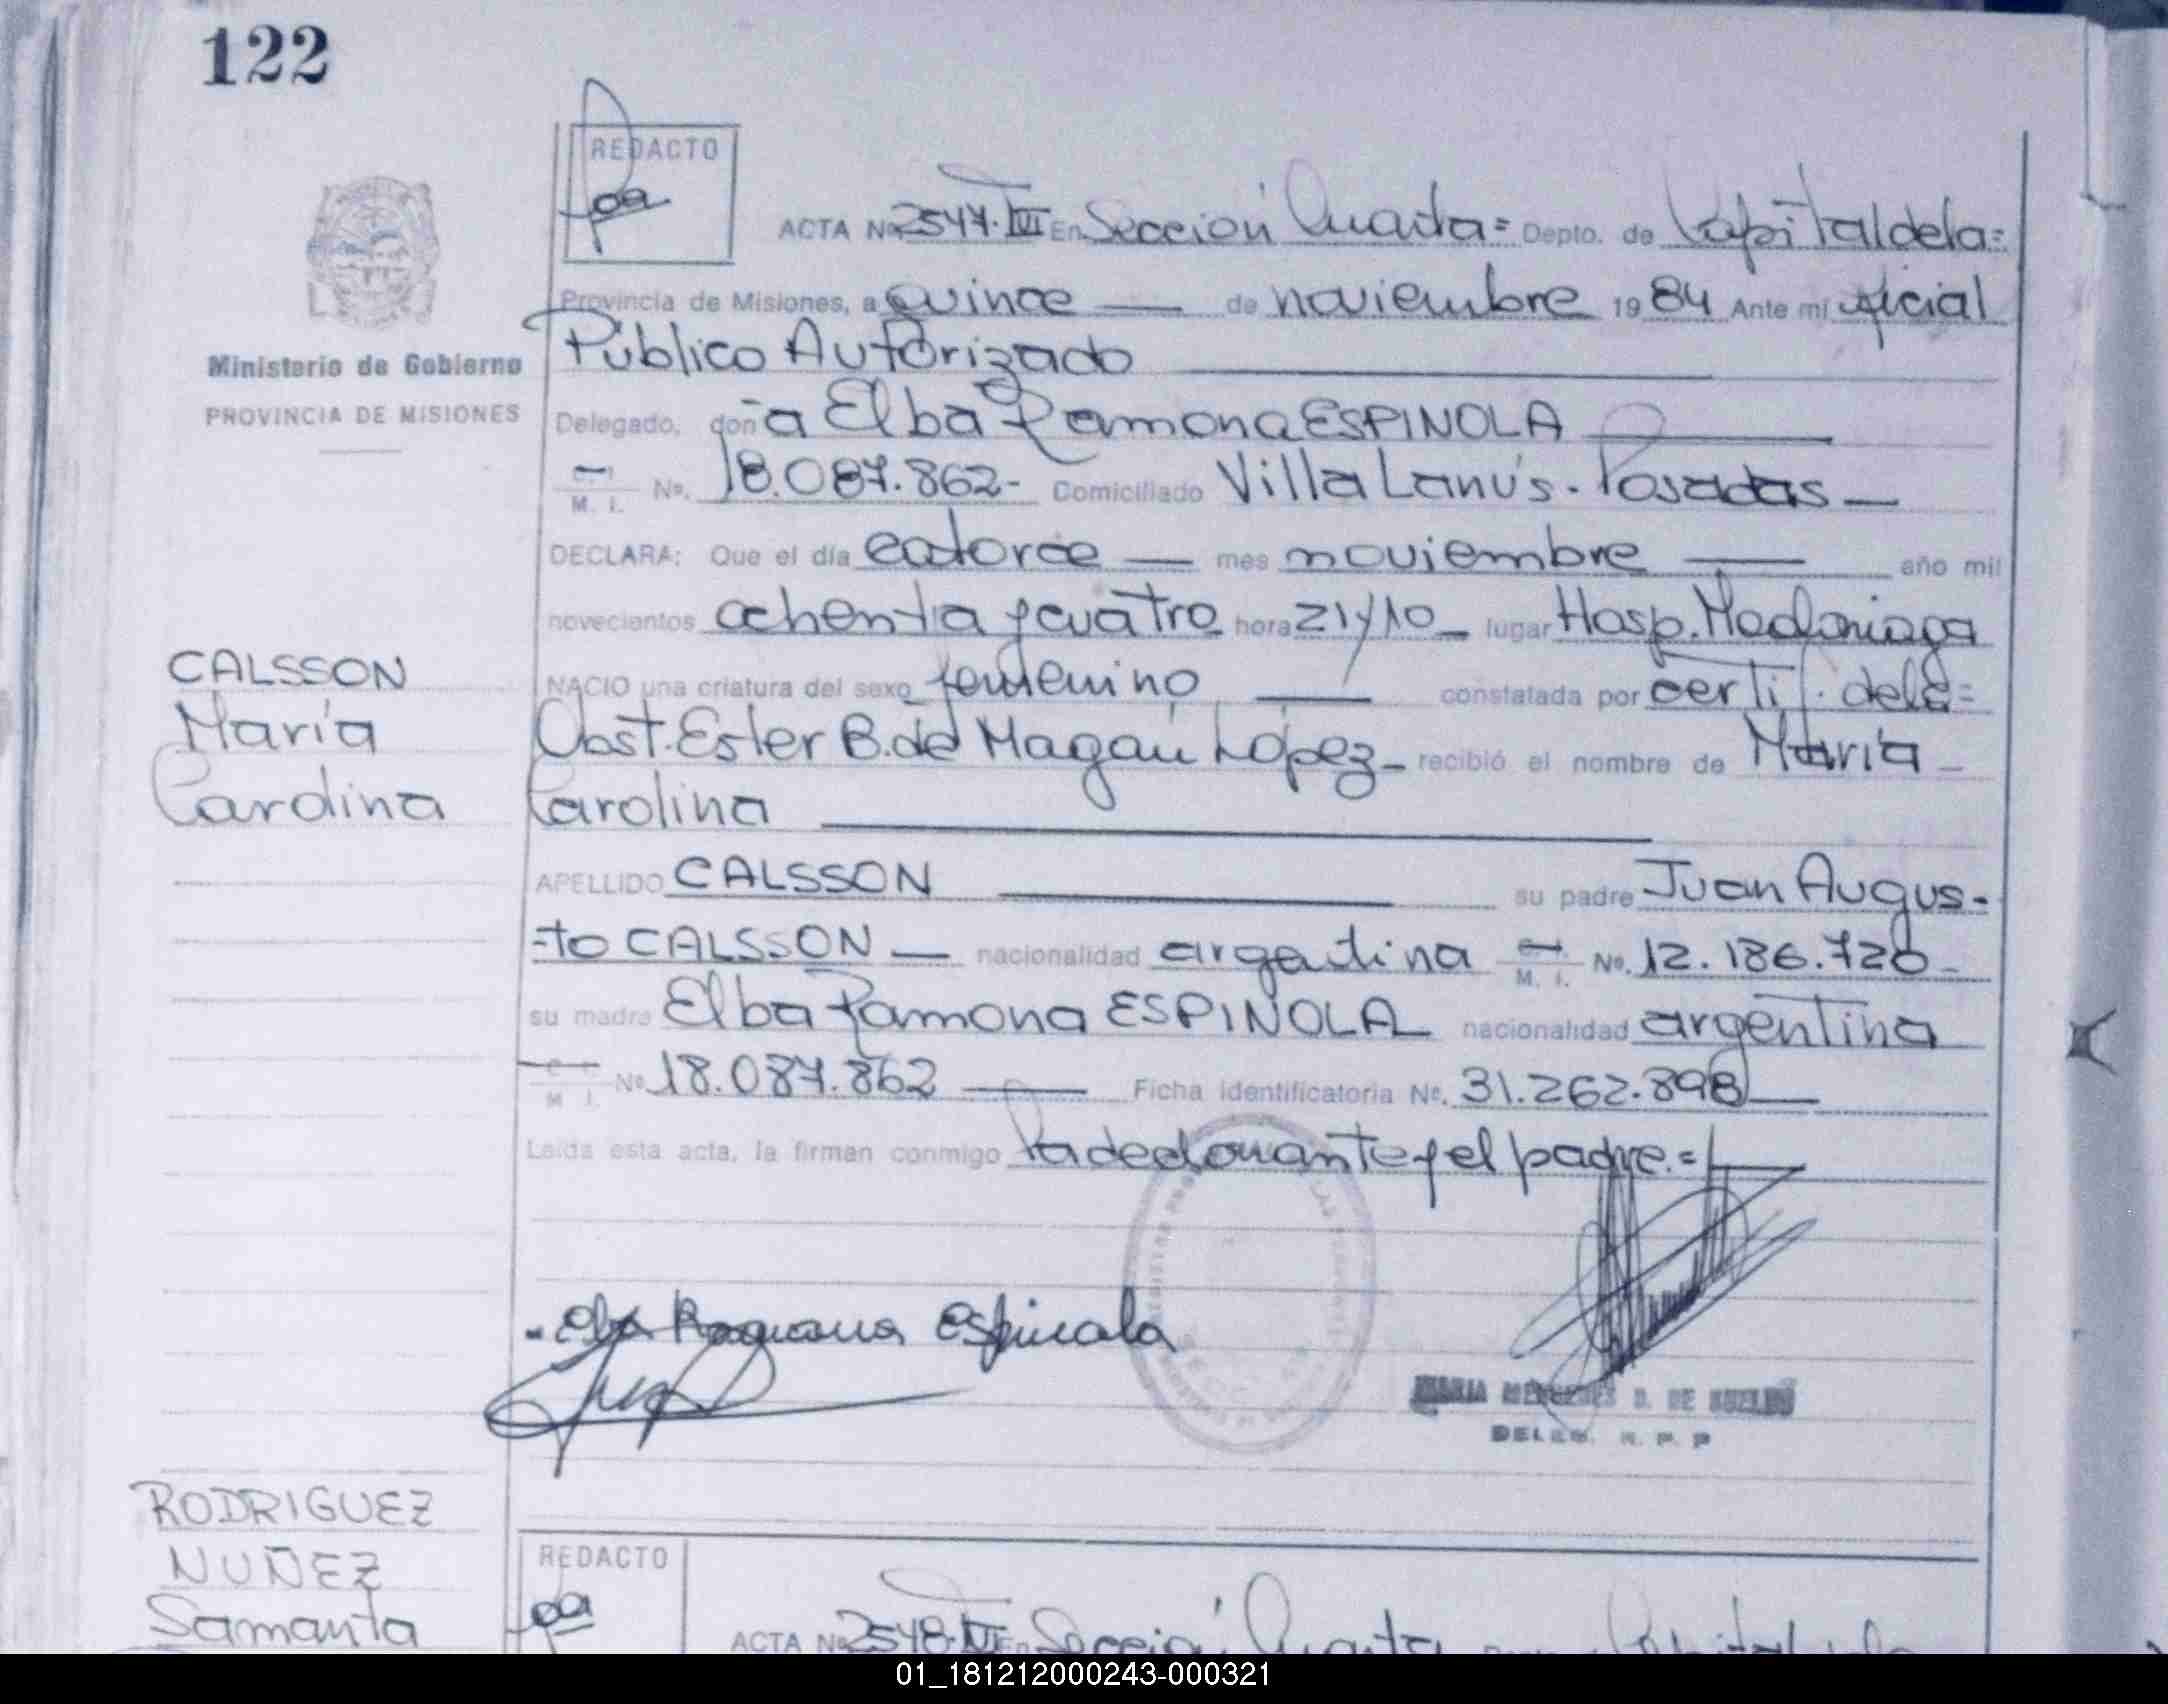 122
REDACTO
ACTA Nº 2547. III En Sección Cuarta= Depto. de Capital de la=
Provincia de Misiones, a quince — de noviembre 1984 Ante mí oficial
Público Autorizado
Ministerio de Gobierno
PROVINCIA DE MISIONES
Delegado, doña Elba Ramona ESPINOLA
C.I. M. I. Nº. 18.087.862- Domiciliado Villa Lanús. Posadas —
DECLARA: Que el día catorce — mes noviembre — año mil
novecientos ochenta y cuatro hora 21y10 — lugar Hosp. Madariaga
NACIO una criatura del sexo femenino — constatada por certif. de la=
Obst. Ester B. de Magán López - recibió el nombre de María -
Carolina
CALSSON
María
Carolina
APELLIDO CALSSON — su padre Juan Augus-
-to CALSSON — nacionalidad argentina C.I. M. I. Nº. 12.186.720-
su madre Elba Ramona ESPINOLA nacionalidad argentina
C. I. M I. Nº 18.087.862 — Ficha identificatoria Nº. 31.262.898 —
Leída esta acta, la firman conmigo la declarante y el padre.=
- Elba Ramona Espinola
MARIA MERCEDES D. DE
DELEG. R. P. P
RODRIGUEZ
NUÑEZ
Samanta
REDACTO
ACTA Nº 2548. III En Sección Cuarta
01_181212000243-000321